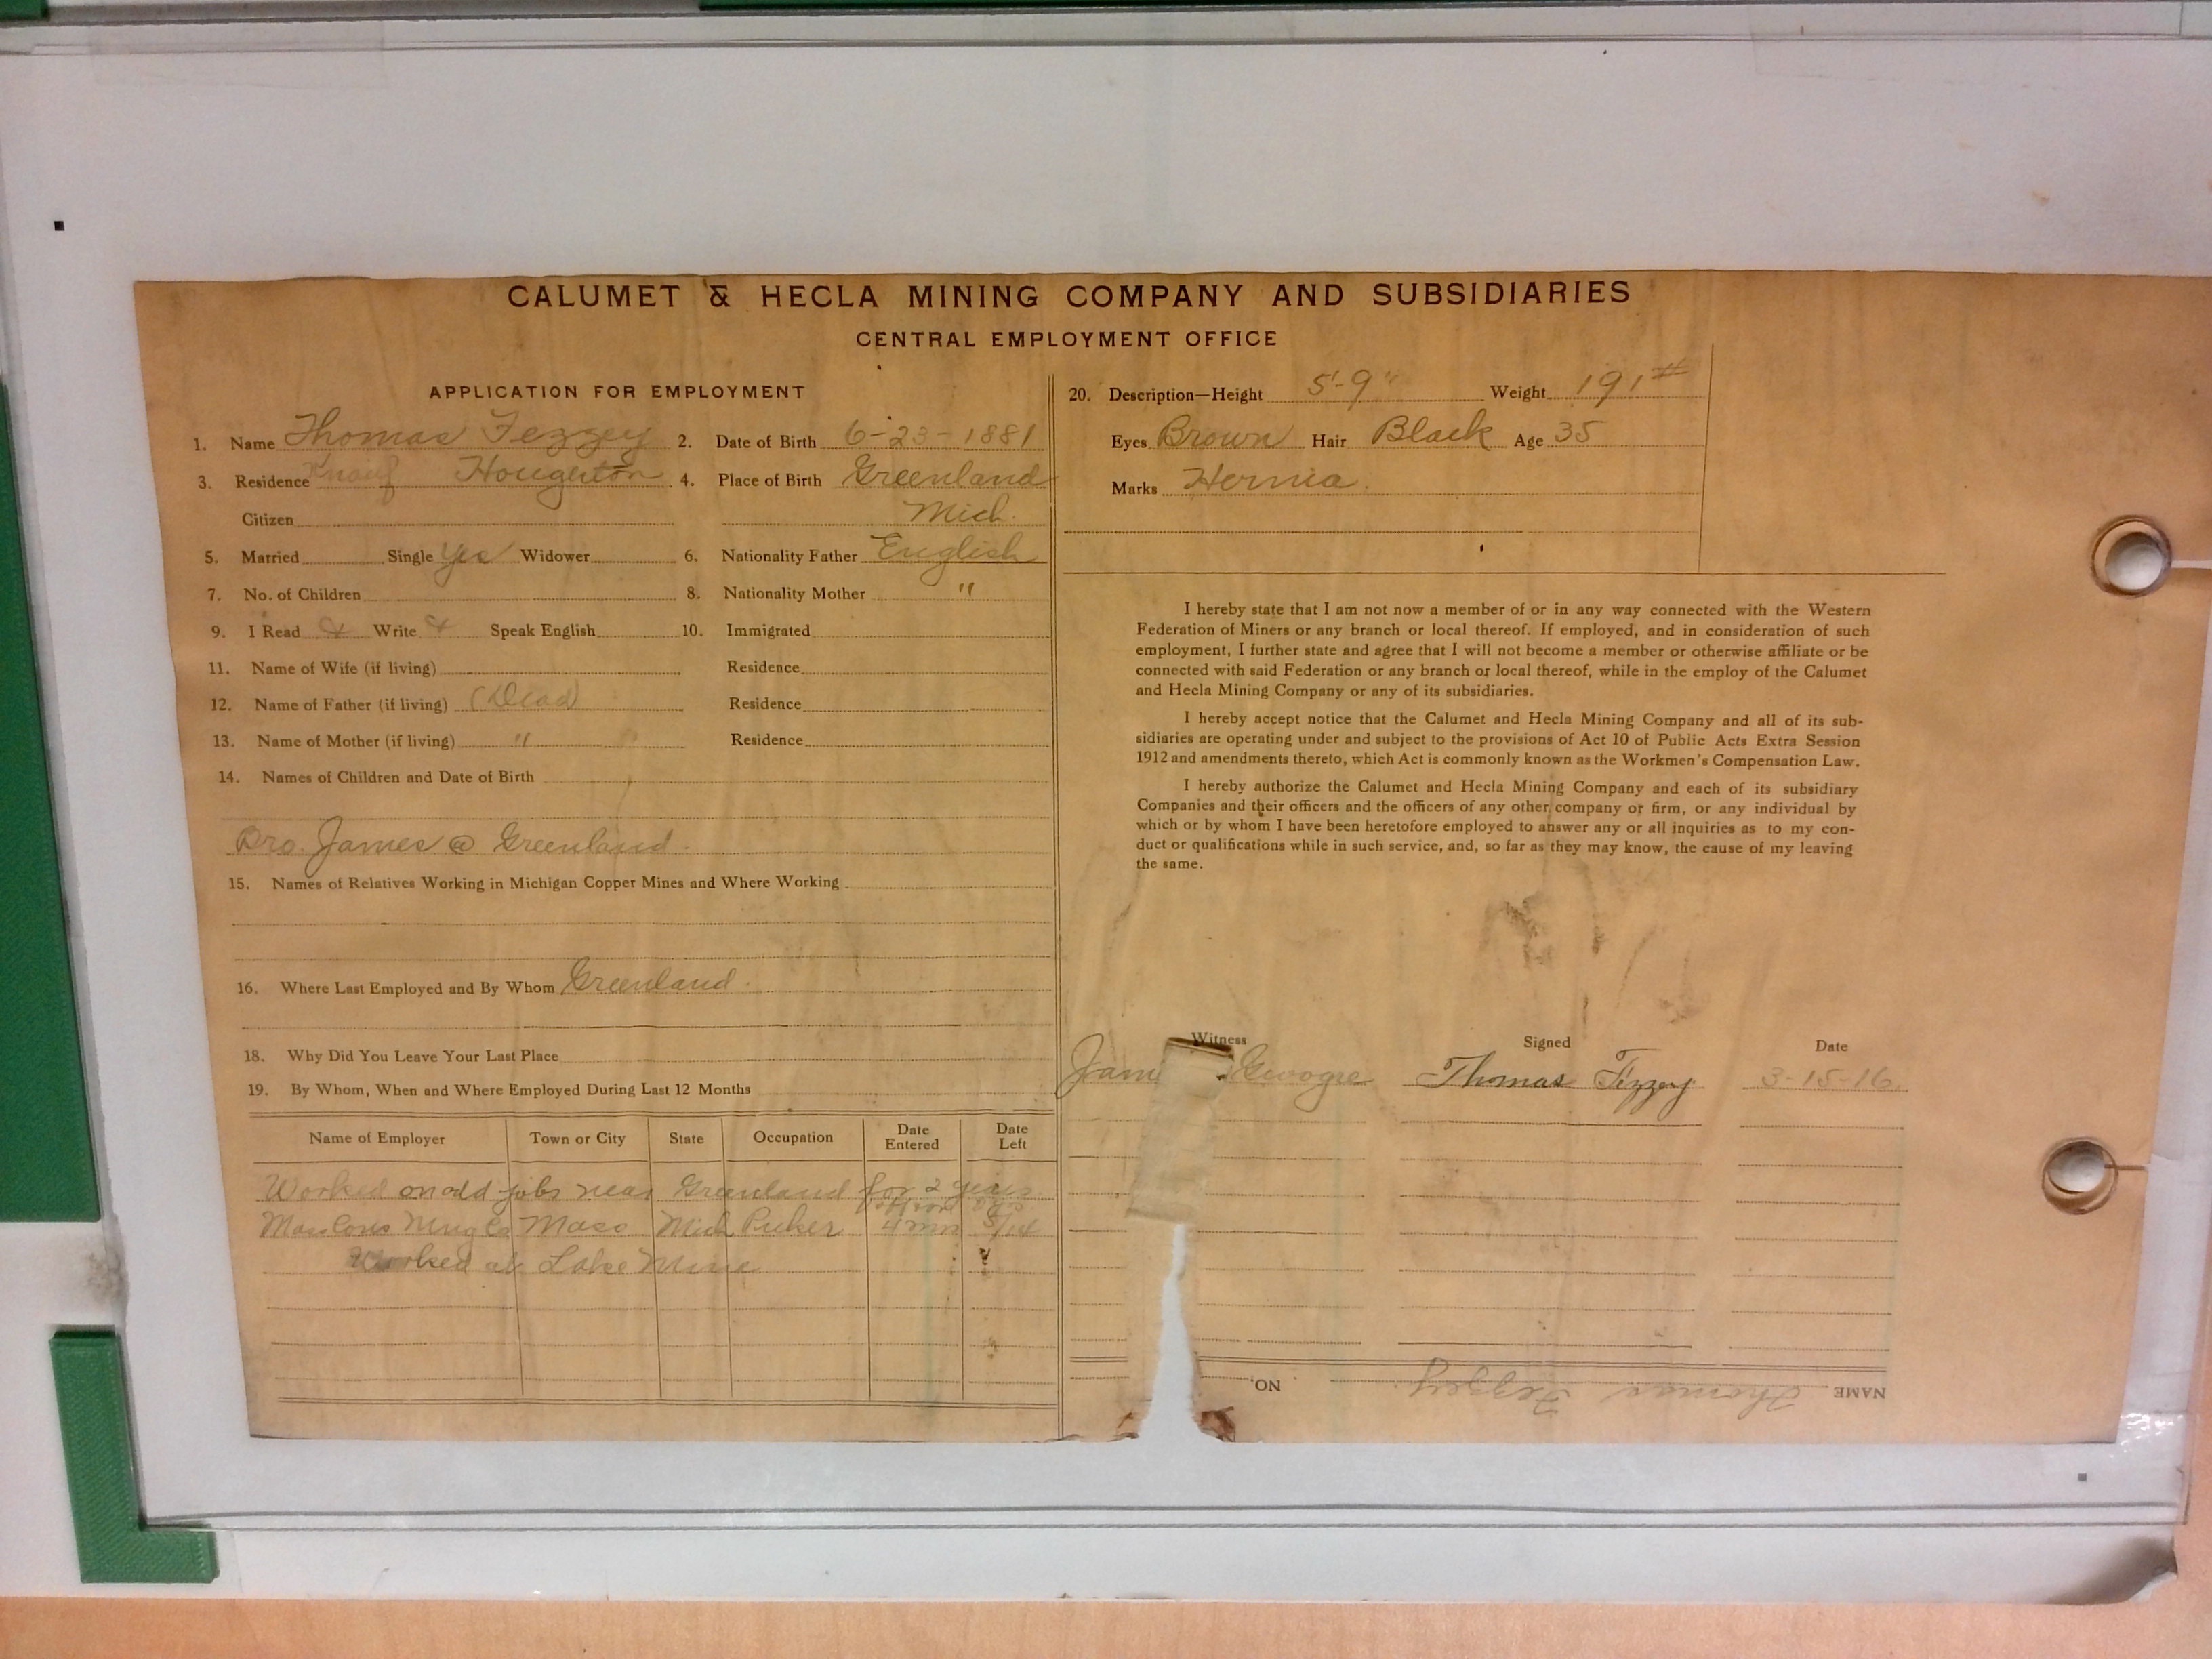 CALUMET & HECLA MINING COMPANY AND SUBSIDIARIES
CENTRAL EMPLOYMENT OFFICE
APPLICATION FOR EMPLOYMENT
1. Name Thomas Tezzey 2. Date of Birth 6-23-1881
3. Residence Houghton 4. Place of Birth Greenland
Citizen Mich.
5. Married Single Yes Widower 6. Nationality Father English
7. No. of Children 8. Nationality Mother "
9. I Read Write Speak English 10. Immigrated
11. Name of Wife (if living) Residence
12. Name of Father (if living) (Dead) Residence
13. Name of Mother (if living) " " Residence
14. Names of Children and Date of Birth
Bro. James @ Greenland.
15. Names of Relatives Working in Michigan Copper Mines and Where Working
16. Where Last Employed and By Whom Greenland.
18. Why Did You Leave Your Last Place
19. By Whom, When and Where Employed During Last 12 Months
Name of Employer Town or City State Occupation Date Entered Date Left
Worked on odd jobs near Greenland for 2 years
Mass Cons Mng Co Mass Mich 4 mos 5/14
Worked at Lake Mine
20. Description—Height 5'-9" Weight 191#
Eyes Brown Hair Black Age 35
Marks Hernia.
I hereby state that I am not now a member of or in any way connected with the Western
Federation of Miners or any branch or local thereof. If employed, and in consideration of such
employment, I further state and agree that I will not become a member or otherwise affiliate or be
connected with said Federation or any branch or local thereof, while in the employ of the Calumet
and Hecla Mining Company or any of its subsidiaries.
I hereby accept notice that the Calumet and Hecla Mining Company and all of its sub-
sidiaries are operating under and subject to the provisions of Act 10 of Public Acts Extra Session
1912 and amendments thereto, which Act is commonly known as the Workmen's Compensation Law.
I hereby authorize the Calumet and Hecla Mining Company and each of its subsidiary
Companies and their officers and the officers of any other company or firm, or any individual by
which or by whom I have been heretofore employed to answer any or all inquiries as to my con-
duct or qualifications while in such service, and, so far as they may know, the cause of my leaving
the same.
Witness Signed Date
Thomas Tezzey 3-15-16.
NAME Thomas Tezzey. NO.